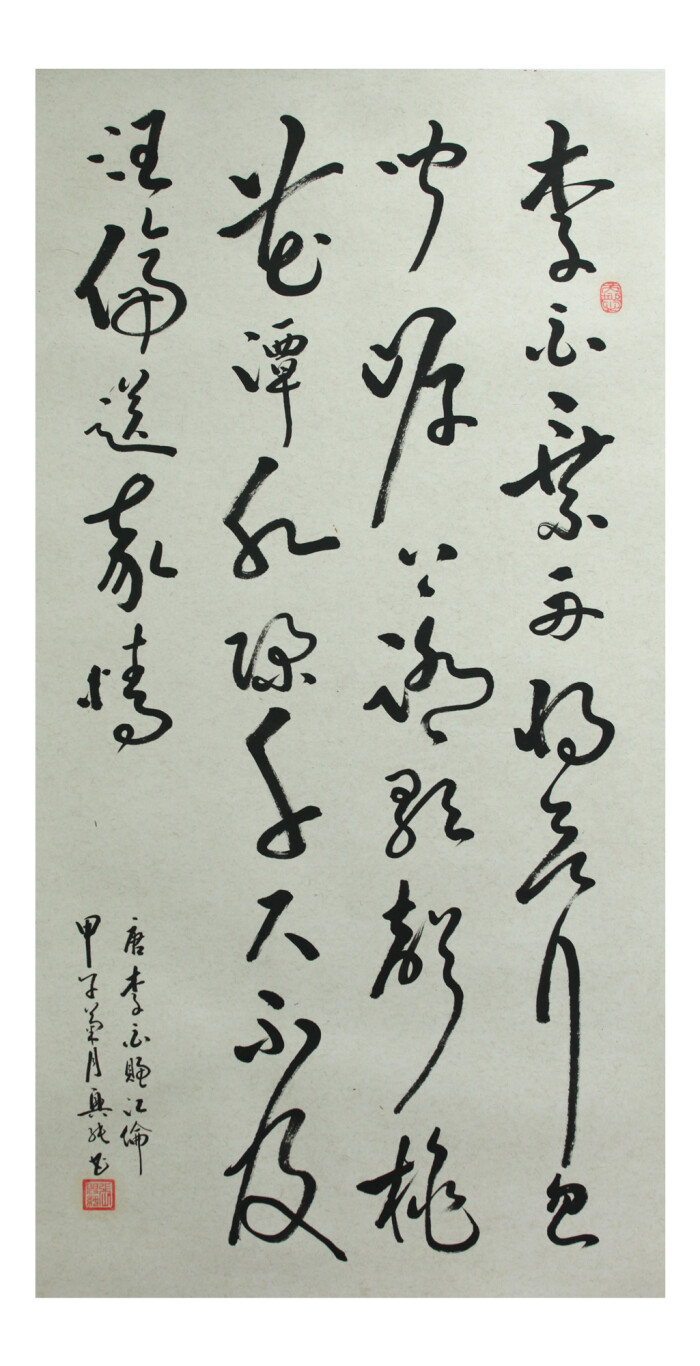 李白乘舟將欲行忽
聞岸上踏歌聲桃
花潭水深千尺不及
汪倫送我情
唐李白贈汪倫
甲子菊月興